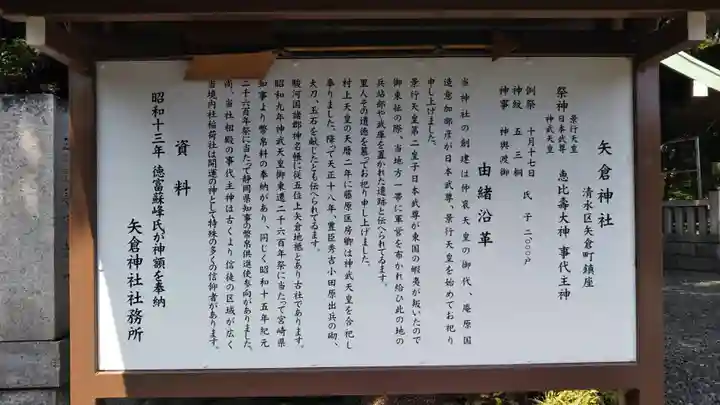 矢倉神社
清水区矢倉町鎮座
祭神
景行天皇
日本武尊
神武天皇
恵比壽大神 事代主神
例祭 十月十七日 氏子 二〇〇〇戸
神紋 五三桐
神事 神輿渡御
由緒沿革
当神社の創建は仲哀天皇の御代、庵原国
造意加部彦が日本武尊、景行天皇を始めてお祀り
申し上げました。
景行天皇第二皇子日本武尊が東国の蝦夷が叛いたので
御東征の際、当地方一帯に軍営を布かれ給ひ此の地の
兵站部や武庫を置かれた遺跡と伝へられてゐます。
里人その遺徳を慕ってお祀り申し上げました。
村上天皇の天暦二年に藤原匡房卿は神武天皇を合祀し
奉りました。降って天正十八年、豊臣秀吉小田原出兵の砌、
大刀、玉石を献じたとも伝へられてゐます。
駿河国諸郡神名帳に従五位上矢倉地祇とあり古社であります。
昭和九年神武天皇御東遷二千六百年祭に当たって宮崎県
知事より幣帛料の奉納があり、同じく昭和十五年紀元
二千六百年祭に当たって静岡県知事の幣帛供進使参向がありました。
尚、当社相殿の事代主神は古くより信徒の区域が広く
当境内社稲荷社は開運の神として特殊の多くの信仰者があります。
資料
昭和十三年 徳富蘇峰氏が神額を奉納
矢倉神社社務所